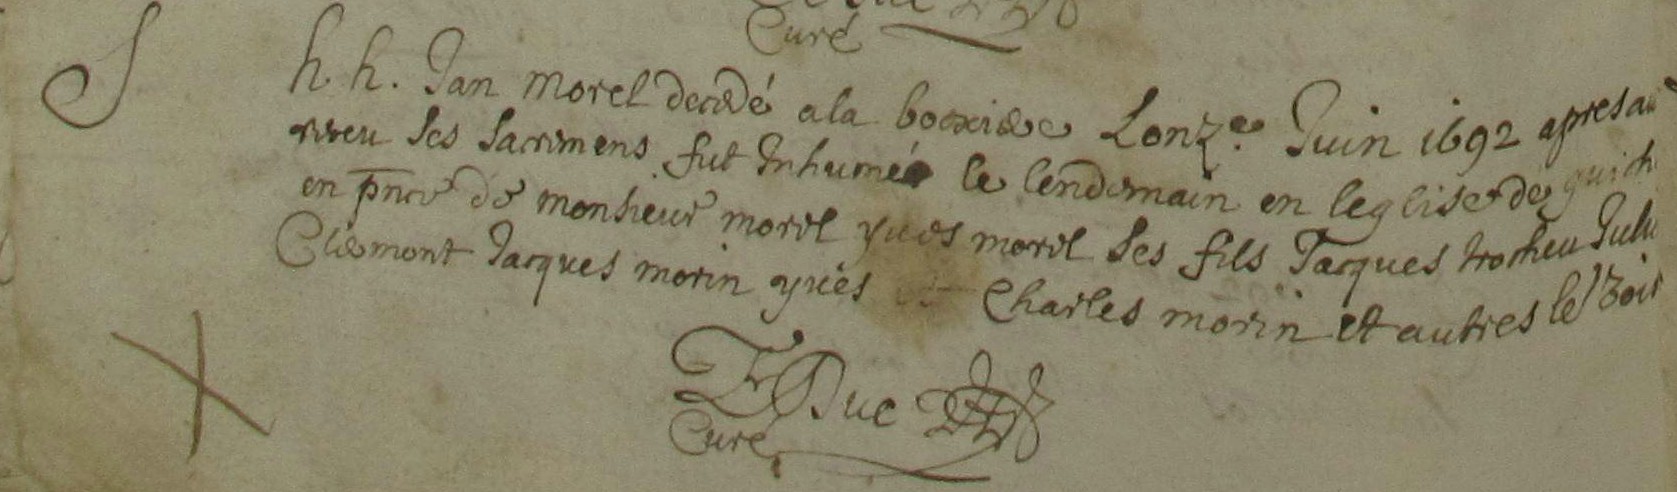 Curé
S
h. h. Jan Morel decedé a la Lonz.e Juin 1692 apres
receu ses sacrimens fut Inhumé le lendemain en leglise de
en pnce de monsieur morel yues morel ses fils Jacques
Clemont Jacques morin yues et Charles morin et autres le
X
Duc
Curé